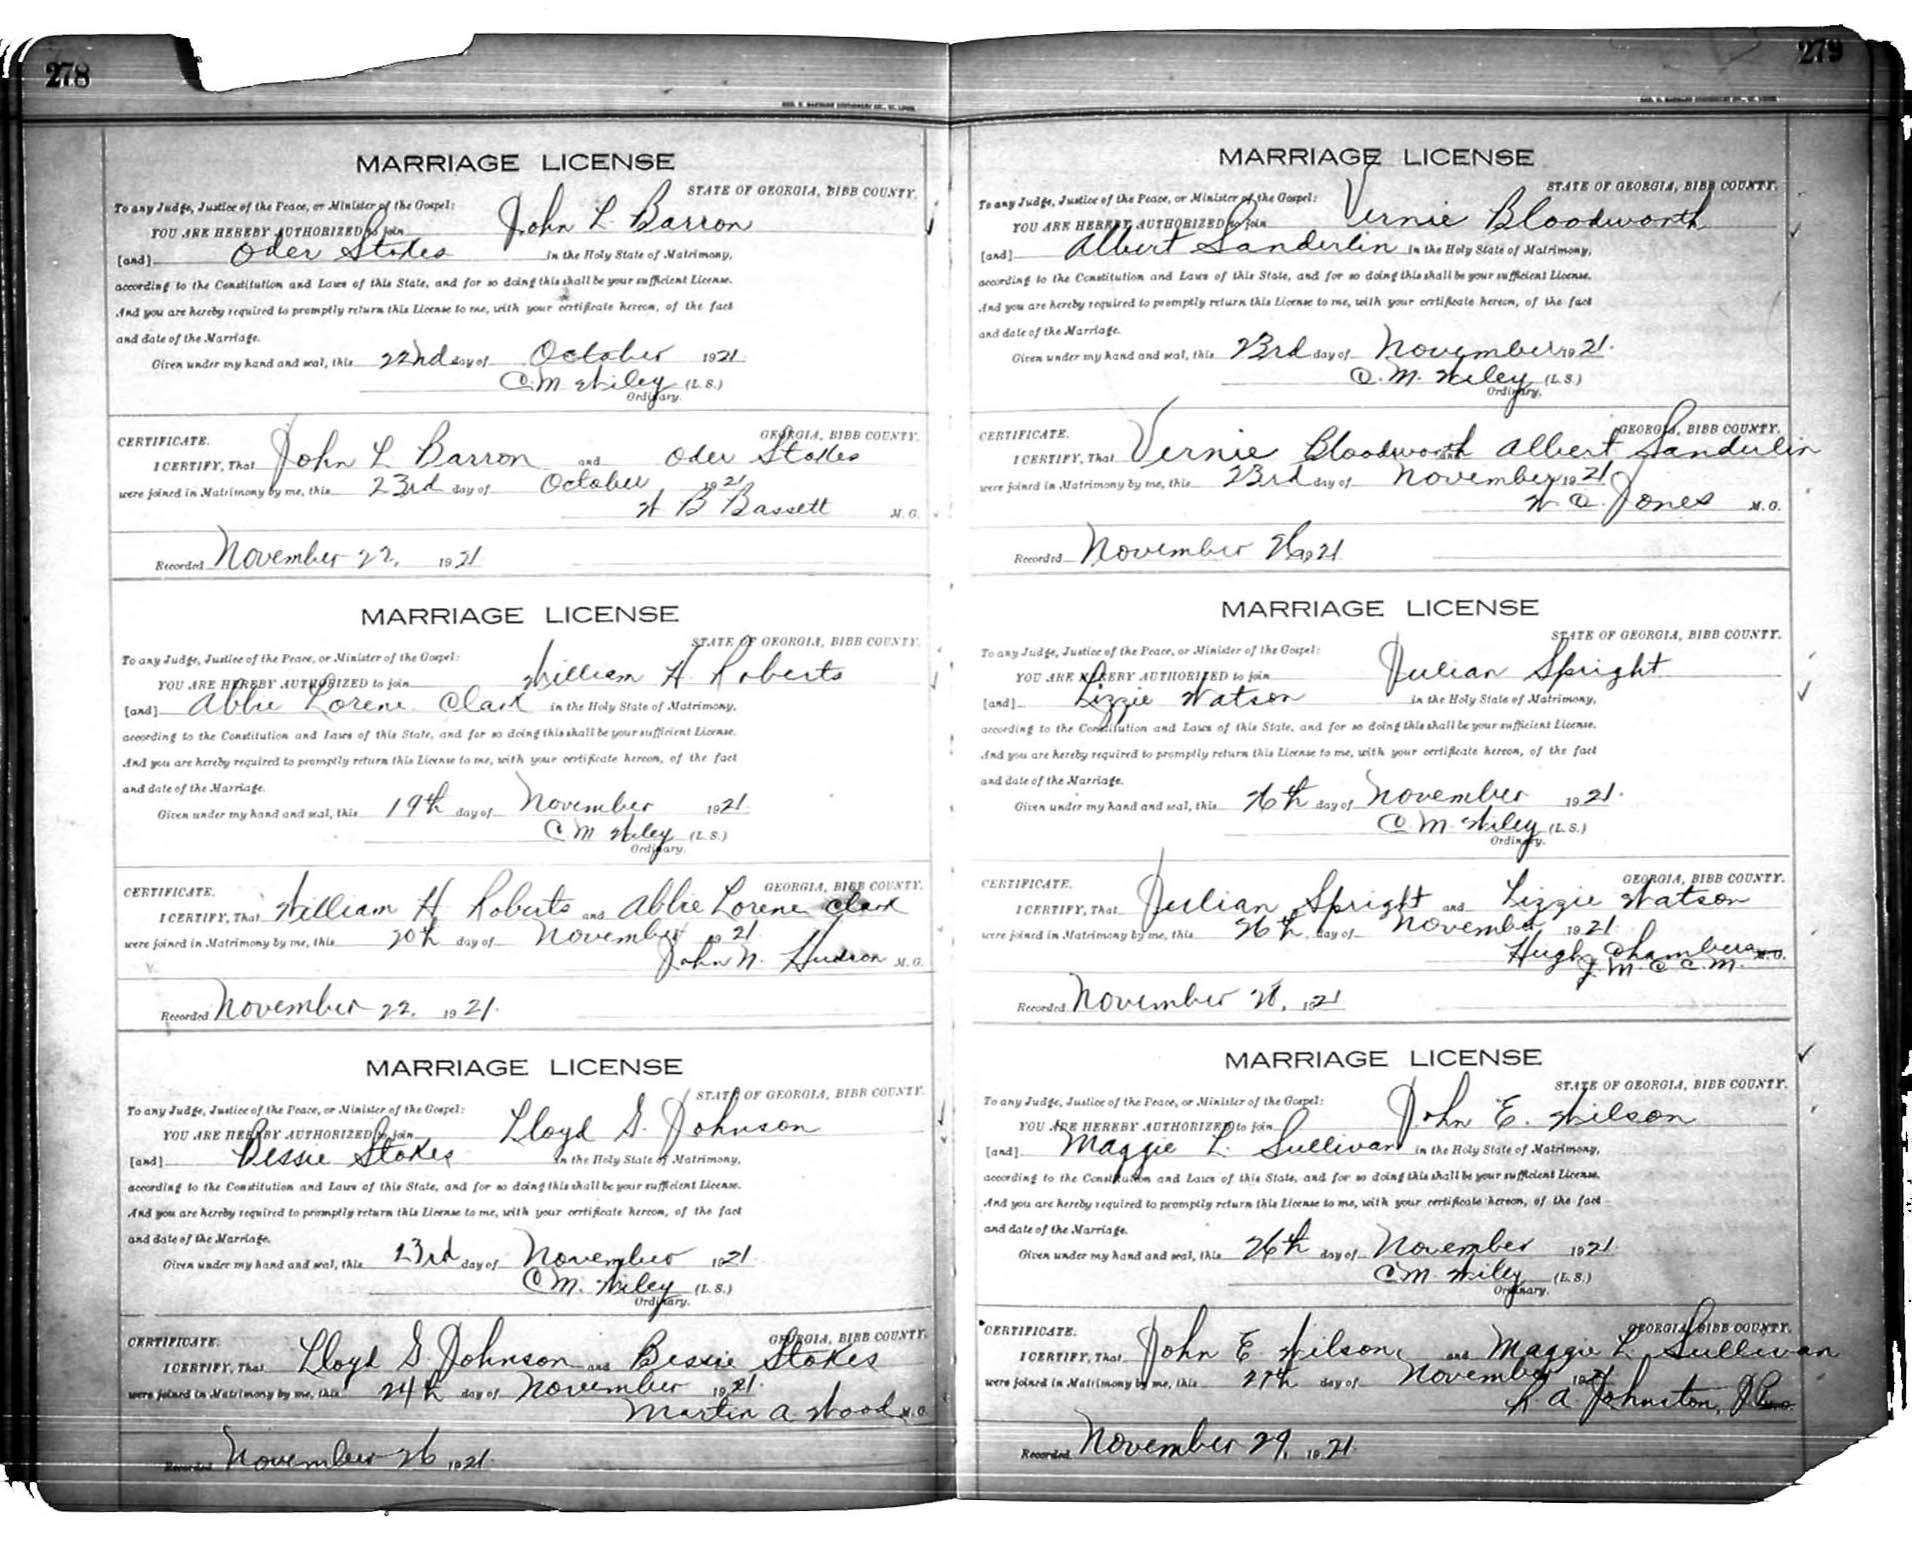 278
GEO. D. BARNARD STATIONERY CO., ST. LOUIS.
MARRIAGE LICENSE
STATE OF GEORGIA, BIBB COUNTY.
To any Judge, Justice of the Peace, or Minister of the Gospel:
YOU ARE HEREBY AUTHORIZED to join John L. Barron
[and] Oder Stokes in the Holy State of Matrimony,
according to the Constitution and Laws of this State, and for so doing this shall be your sufficient License.
And you are hereby required to promptly return this License to me, with your certificate hereon, of the fact
and date of the Marriage.
Given under my hand and seal, this 22nd day of October 1921.
C. M. Wiley (L.S.)
Ordinary.
CERTIFICATE. GEORGIA, BIBB COUNTY.
I CERTIFY, That John L Barron and Oder Stokes
were joined in Matrimony by me, this 23rd day of October 1921
W B Bassett M. G.
Recorded November 22, 1921
MARRIAGE LICENSE
STATE OF GEORGIA, BIBB COUNTY.
To any Judge, Justice of the Peace, or Minister of the Gospel:
YOU ARE HEREBY AUTHORIZED to join William H. Roberts
[and] Abbie Lorene Clark in the Holy State of Matrimony,
according to the Constitution and Laws of this State, and for so doing this shall be your sufficient License.
And you are hereby required to promptly return this License to me, with your certificate hereon, of the fact
and date of the Marriage.
Given under my hand and seal, this 19th day of November 1921.
C M Wiley (L.S.)
Ordinary.
CERTIFICATE. GEORGIA, BIBB COUNTY.
I CERTIFY, That William H Roberts and Abbie Lorene Clark
were joined in Matrimony by me, this 20th day of November 1921.
John N. Hudson M. G.
Recorded November 22, 1921.
MARRIAGE LICENSE
STATE OF GEORGIA, BIBB COUNTY.
To any Judge, Justice of the Peace, or Minister of the Gospel:
YOU ARE HEREBY AUTHORIZED to join Lloyd G. Johnson
[and] Bessie Stokes in the Holy State of Matrimony,
according to the Constitution and Laws of this State, and for so doing this shall be your sufficient License.
And you are hereby required to promptly return this License to me, with your certificate hereon, of the fact
and date of the Marriage.
Given under my hand and seal, this 23rd day of November 1921.
C M. Wiley (L.S.)
Ordinary.
CERTIFICATE. GEORGIA, BIBB COUNTY.
I CERTIFY, That Lloyd G. Johnson and Bessie Stokes
were joined in Matrimony by me, this 24th day of November 1921.
Martin A. Wood M. G.
Recorded November 26 1921.
279
GEO. D. BARNARD STATIONERY CO., ST. LOUIS.
MARRIAGE LICENSE
STATE OF GEORGIA, BIBB COUNTY.
To any Judge, Justice of the Peace, or Minister of the Gospel:
YOU ARE HEREBY AUTHORIZED to join Vernie Bloodworth
[and] Albert Sanderlin in the Holy State of Matrimony,
according to the Constitution and Laws of this State, and for so doing this shall be your sufficient License.
And you are hereby required to promptly return this License to me, with your certificate hereon, of the fact
and date of the Marriage.
Given under my hand and seal, this 23rd day of November 1921.
C. M. Wiley (L.S.)
Ordinary.
CERTIFICATE. GEORGIA, BIBB COUNTY.
I CERTIFY, That Vernie Bloodworth and Albert Sanderlin
were joined in Matrimony by me, this 23rd day of November 1921
W. C. Jones M. G.
Recorded November 26, 1921
MARRIAGE LICENSE
STATE OF GEORGIA, BIBB COUNTY.
To any Judge, Justice of the Peace, or Minister of the Gospel:
YOU ARE HEREBY AUTHORIZED to join Julian Spright
[and] Lizzie Watson in the Holy State of Matrimony,
according to the Constitution and Laws of this State, and for so doing this shall be your sufficient License.
And you are hereby required to promptly return this License to me, with your certificate hereon, of the fact
and date of the Marriage.
Given under my hand and seal, this 26th day of November 1921.
C. M. Wiley (L.S.)
Ordinary.
CERTIFICATE. GEORGIA, BIBB COUNTY.
I CERTIFY, That Julian Spright and Lizzie Watson
were joined in Matrimony by me, this 26th day of November 1921.
Hugh Chambers M. G.
J. M. C. C. M.
Recorded November 28, 1921
MARRIAGE LICENSE
STATE OF GEORGIA, BIBB COUNTY.
To any Judge, Justice of the Peace, or Minister of the Gospel:
YOU ARE HEREBY AUTHORIZED to join John E. Wilson
[and] Maggie L. Sullivan in the Holy State of Matrimony,
according to the Constitution and Laws of this State, and for so doing this shall be your sufficient License.
And you are hereby required to promptly return this License to me, with your certificate hereon, of the fact
and date of the Marriage.
Given under my hand and seal, this 26th day of November 1921
C M. Wiley (L.S.)
Ordinary.
CERTIFICATE. GEORGIA, BIBB COUNTY.
I CERTIFY, That John E. Wilson, and Maggie L. Sullivan
were joined in Matrimony by me, this 27th day of November 1921
L. A. Johnston, J P M. G.
Recorded November 29, 1921.